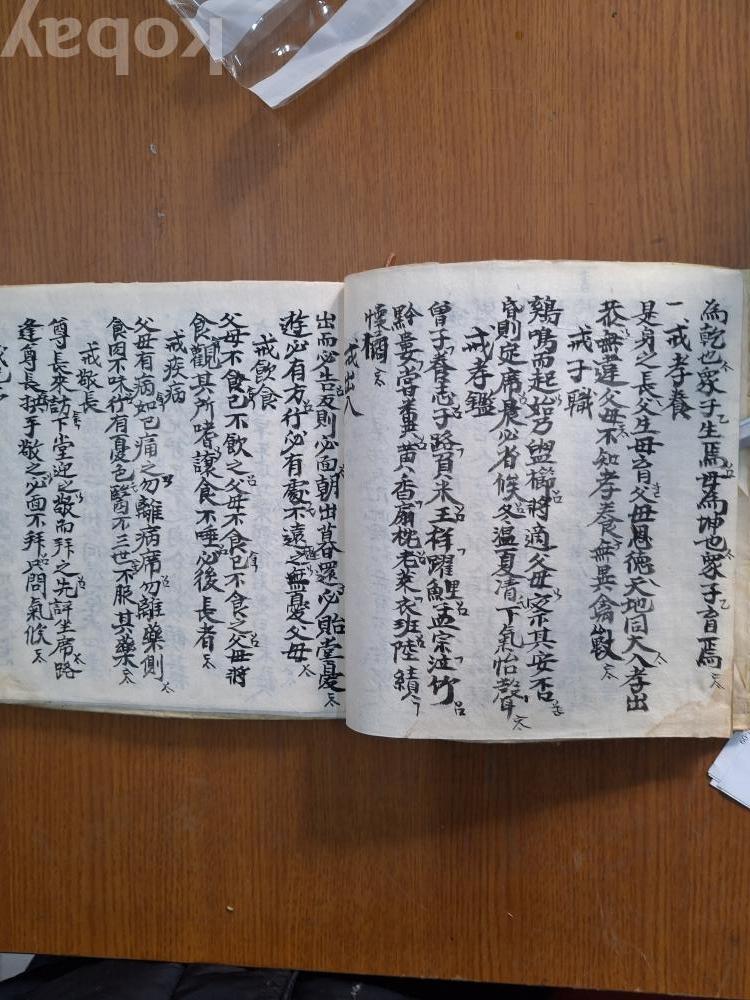 爲乾也衆子生焉母爲坤也衆子育焉
一戒孝養
是身之長父生母育父母恩德天地同大入孝出
恭無違父母不知孝養無異禽獸
戒子職
鷄鳴而起始乃盥櫛將適父母察其安否
昏則定席晨必省候冬溫夏凊下氣怡聲
戒孝鑑
曾子養志子路負米王祥躍鯉孟宗泣竹
黔婁嘗糞黃香扇枕老萊衣班陸績
懷橘
戒出入
出而必告反則必面朝出暮還必貽堂憂
遊必有方行必有處不遠之無憂父母
戒飮食
父母不食己不飮之父母不食己不食之父母將
食觀其所嗜讓食不唾必後長者
戒疾病
父母有病如己痛之勿離病席勿離藥側
食因不味行有憂色醫不三世不服其藥
戒敬長
尊長來訪下堂迎之敬而拜之先評坐席路
逢尊長拱手敬之必面不拜此問氣候
kobay